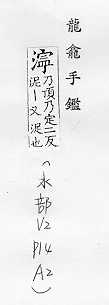 龍龕手鑑
濘乃頂乃定二反
泥ー又泥也
(水部
V2
P14
A2)